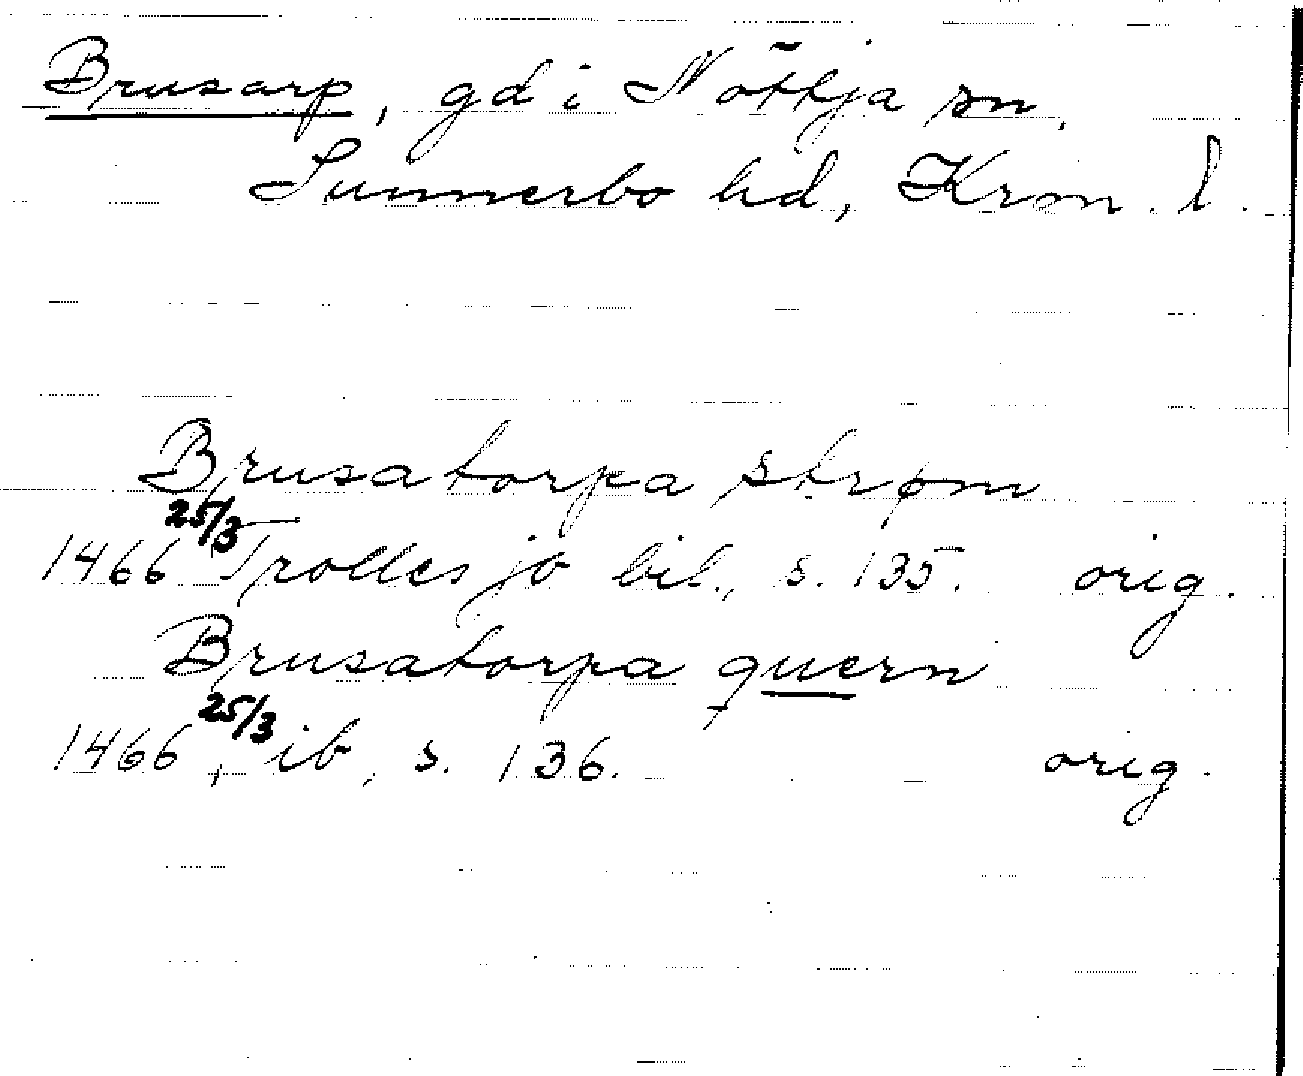 Brusarp, gd i Nöttja sn,
Sunnerbo hd, Kron. l.
Brusatorpa strøm
1466 25/3 Trolles jb bil., s. 135. orig.
Brusatorpa quern
1466 25/3, ib, s. 136. orig.